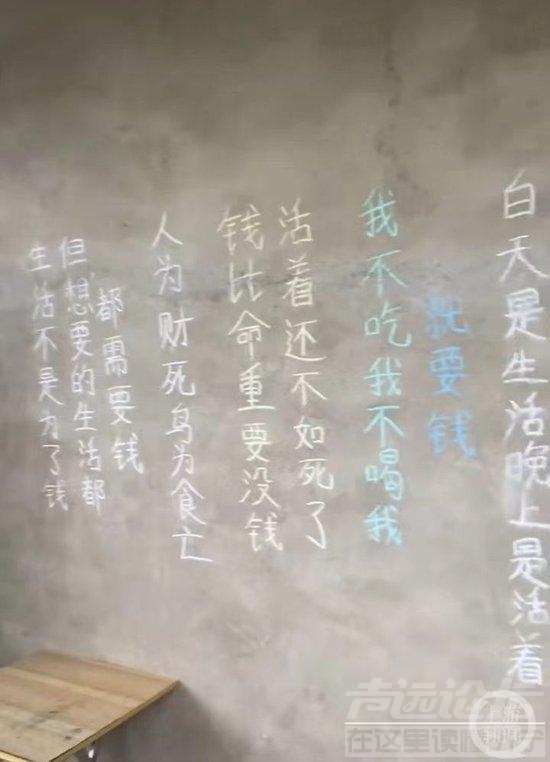 生活不是为了钱
但想要的生活都
都需要钱
人为财死鸟为食亡
钱比命重要没钱
活着还不如死了
我不吃我不喝我
就要钱
白天是生活晚上是活着
声远论
在这里读懂
上游
新闻